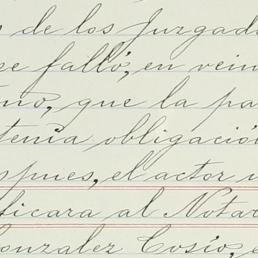 de los Juzgad
se falló, en vein
que la pa
tenía obligació
spues, el actor
ficara al Nota
onzalez Cosío,